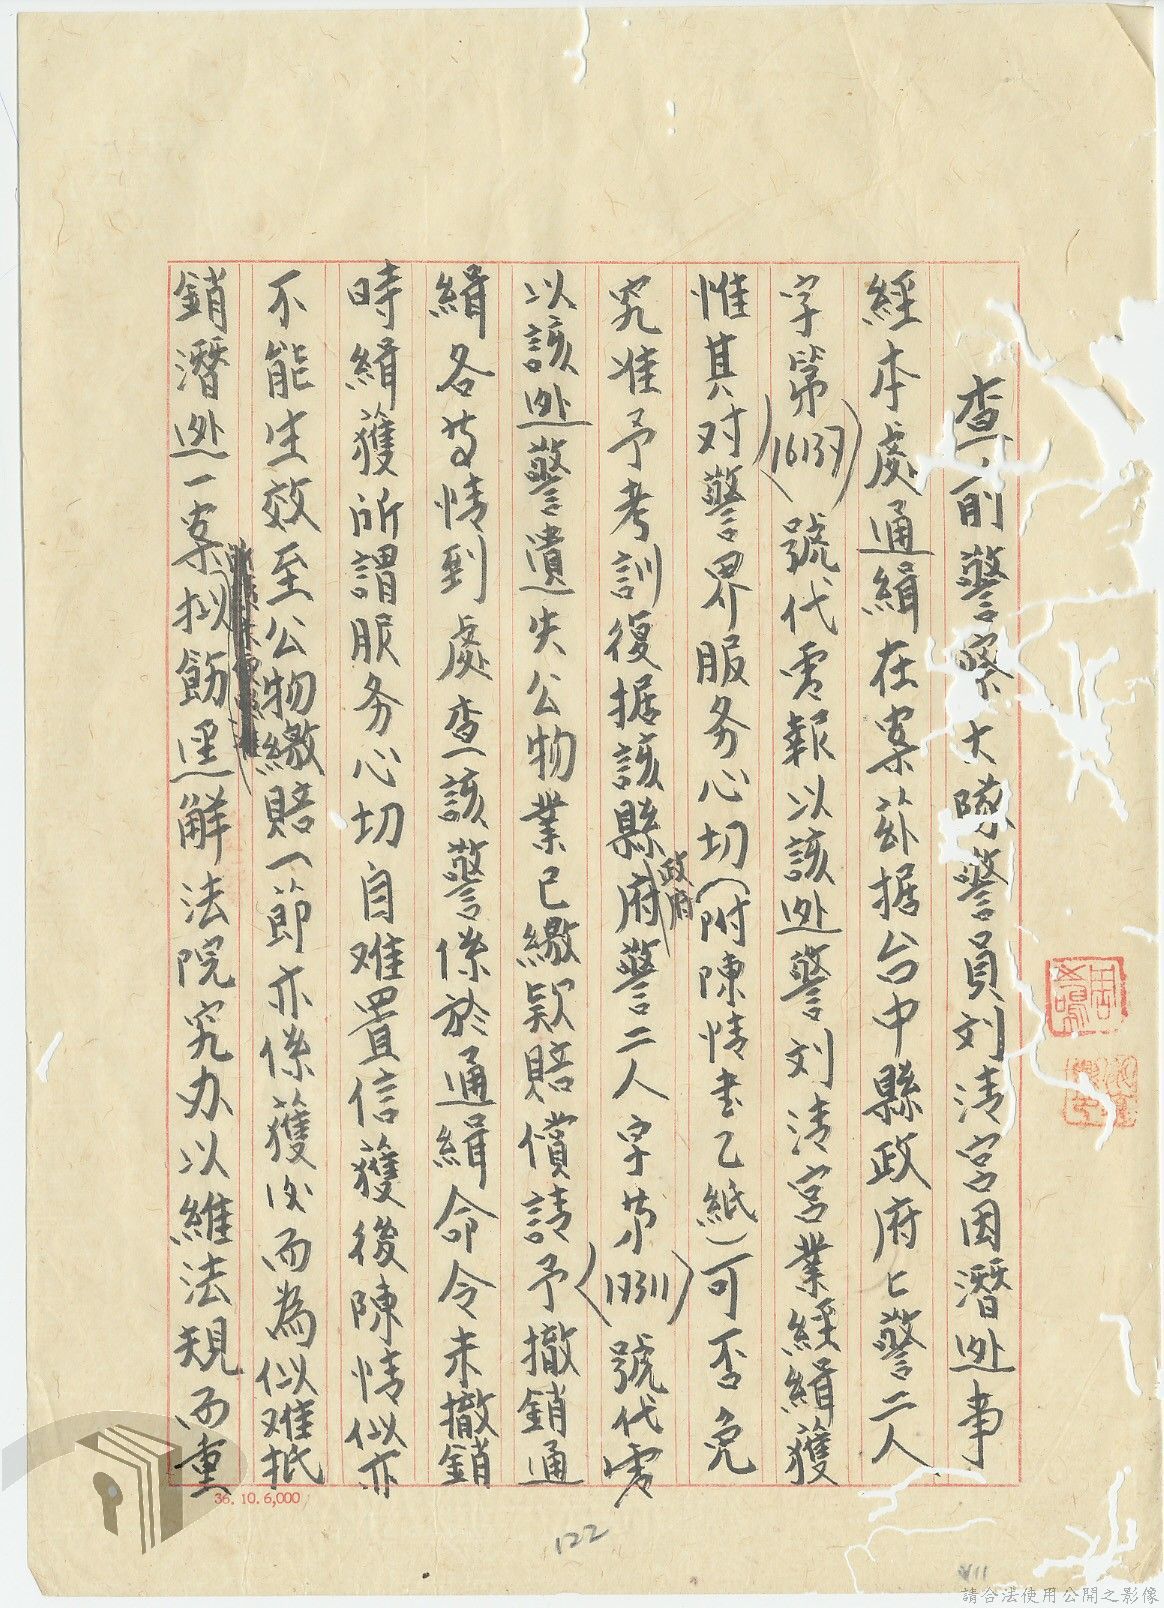 查前警察大隊警員刘清宮因潛逃事
經本處通緝在案茲据台中縣政府亡警二人
字第(16137)號代電報以該逃警刘清宮業經緝獲
惟其对警界服务心切(附陳情書乙紙)可否免
究准予考訓復据該縣政府警二人字第(17311)號代電
以該逃警遺失公物業已繳款賠償請予撤銷通
緝各等情到處查該警係於通緝命令未撤銷
時緝獲所謂服务心切自难置信獲後陳情似亦
不能生效至公物繳賠一節亦係獲後而為似难抵
銷潛逃一案拟飭逕解法院究办以維法規而重
36.10.6,000
122
請合法使用公開之影像